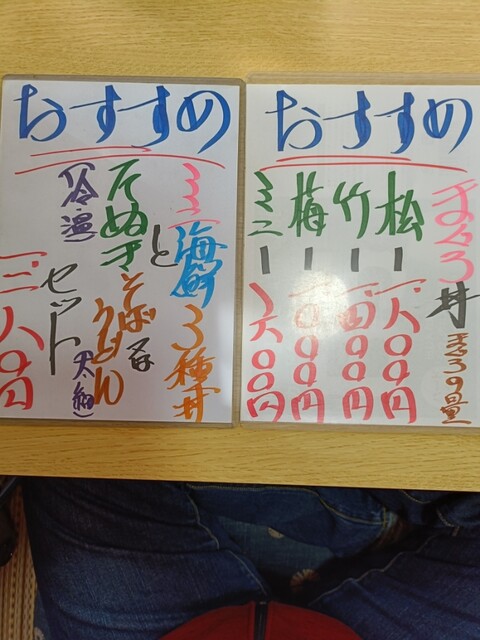 おすすめ
まぐろ丼 まぐろの量
松ー一、八〇〇円
竹ー一、四〇〇円
梅ー一、〇〇〇円
ミニー六〇〇円
おすすめ
ミニ海鮮3種丼
と
たぬきそば又はうどん
(冷・温)
セット